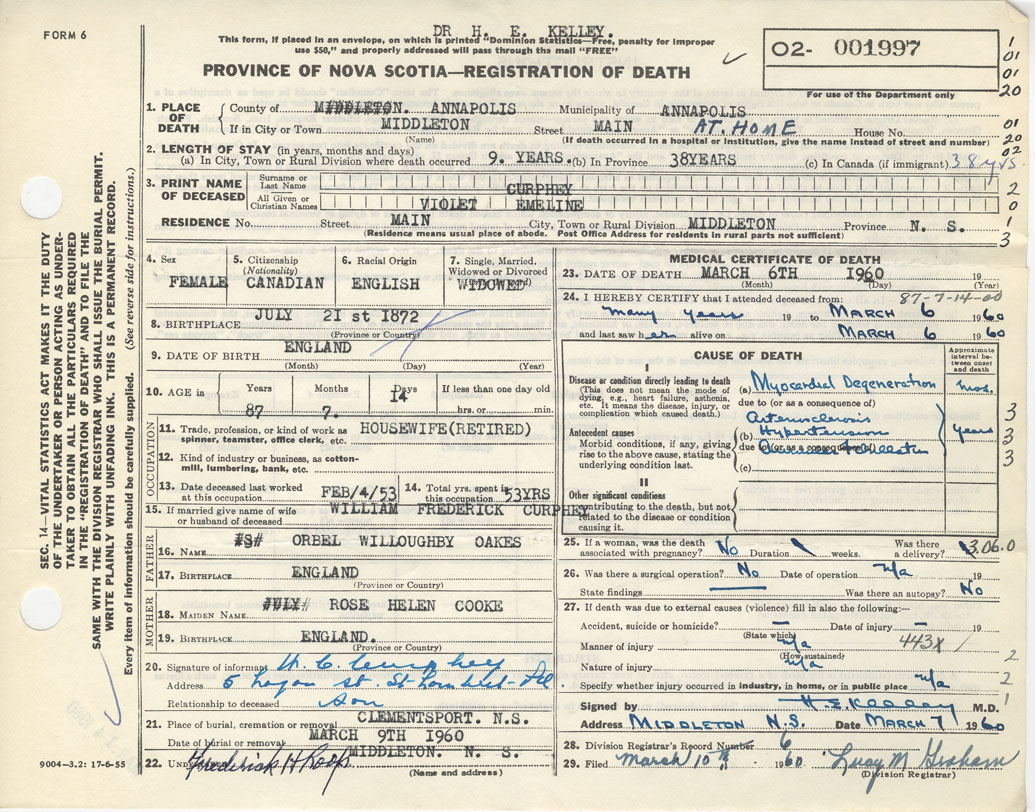 FORM 6
DR H. E. KELLEY.
This form, if placed in an envelope, on which is printed "Dominion Statistics—Free, penalty for improper
use $50," and properly addressed will pass through the mail "FREE"
O2- 001997
For use of the Department only
PROVINCE OF NOVA SCOTIA—REGISTRATION OF DEATH
1
01
01
20
1. PLACE OF DEATH
County of MIDDLETON. ANNAPOLIS Municipality of ANNAPOLIS
If in City or Town MIDDLETON Street MAIN AT. HOME House No.
(Name) (If death occurred in a hospital or Institution, give the name instead of street and number)
01
20
02
2. LENGTH OF STAY (in years, months and days)
(a) In City, Town or Rural Division where death occurred 9. YEARS. (b) In Province 38YEARS (c) In Canada (if immigrant) 38 yrs
3. PRINT NAME OF DECEASED
Surname or Last Name CURPHEY
All Given or Christian Names VIOLET EMELINE
2
0
1
3
RESIDENCE No. Street MAIN City, Town or Rural Division MIDDLETON Province N. S.
(Residence means usual place of abode. Post Office Address for residents in rural parts not sufficient)
4. Sex FEMALE
5. Citizenship (Nationality) CANADIAN
6. Racial Origin ENGLISH
7. Single, Married, Widowed or Divorced WIDOWED
JULY 2I st I872
8. BIRTHPLACE
(Province or Country)
9. DATE OF BIRTH ENGLAND
(Month) (Day) (Year)
10. AGE in Years 87 Months 7. Days I4 If less than one day old hrs. or min.
OCCUPATION
11. Trade, profession, or kind of work as spinner, teamster, office clerk, etc. HOUSEWIFE(RETIRED)
12. Kind of industry or business, as cotton-mill, lumbering, bank, etc.
13. Date deceased last worked at this occupation FEB/4/53
14. Total yrs. spent in this occupation 53YRS
15. If married give name of wife or husband of deceased WILLIAM FREDERICK CURPHEY
FATHER
16. NAME ORBEL WILLOUGHBY OAKES
17. BIRTHPLACE ENGLAND
(Province or Country)
MOTHER
18. MAIDEN NAME JULY ROSE HELEN COOKE
19. BIRTHPLACE ENGLAND.
(Province or Country)
20. Signature of informant
Address
Relationship to deceased Son
21. Place of burial, cremation or removal CLEMENTSPORT. N.S.
Date of burial or removal MARCH 9TH I960
MIDDLETON. N. S.
22. Frederick H Roop
(Name and address)
9004—3.2: 17-6-55
MEDICAL CERTIFICATE OF DEATH
23. DATE OF DEATH MARCH 6TH I960 19
(Month) (Day) (Year)
24. I HEREBY CERTIFY that I attended deceased from: 87-7-14-00
many years 19 to MARCH 6 1960
and last saw her alive on MARCH 6 1960
CAUSE OF DEATH
Approximate interval between onset and death
I
Disease or condition directly leading to death
(This does not mean the mode of dying, e.g., heart failure, asthenia, etc. It means the disease, injury, or complication which caused death.)
(a) Myocardial Degeneration mos.
due to (or as a consequence of)
Arteriosclerosis
Antecedent causes
Morbid conditions, if any, giving rise to the above cause, stating the underlying condition last.
(b) Hypertension years
due to (or as a consequence of)
(c)
3
3
3
3
II
Other significant conditions
contributing to the death, but not related to the disease or condition causing it.
25. If a woman, was the death associated with pregnancy? No Duration weeks. Was there a delivery? 3.06.0
26. Was there a surgical operation? No Date of operation n/a 19
State findings Was there an autopsy? No
27. If death was due to external causes (violence) fill in also the following:—
Accident, suicide or homicide? – Date of injury – 19
(State which)
Manner of injury n/a 443X 1
(How sustained)
Nature of injury n/a 2
Specify whether injury occurred in industry, in home, or in public place n/a 2
Signed by H. E. Kelley M.D. 1
Address MIDDLETON N.S. Date MARCH 7 1960
28. Division Registrar's Record Number 6
29. Filed March 10th 1960 Lucy M Graham
(Division Registrar)
SEC. 14—VITAL STATISTICS ACT MAKES IT THE DUTY
OF THE UNDERTAKER OR PERSON ACTING AS UNDER-
TAKER TO OBTAIN ALL THE PARTICULARS REQUIRED
IN THE "REGISTRATION OF DEATH" AND TO FILE THE
SAME WITH THE DIVISION REGISTRAR WHO SHALL ISSUE THE BURIAL PERMIT.
WRITE PLAINLY WITH UNFADING INK. THIS IS A PERMANENT RECORD.
Every item of information should be carefully supplied. (See reverse side for instructions.)